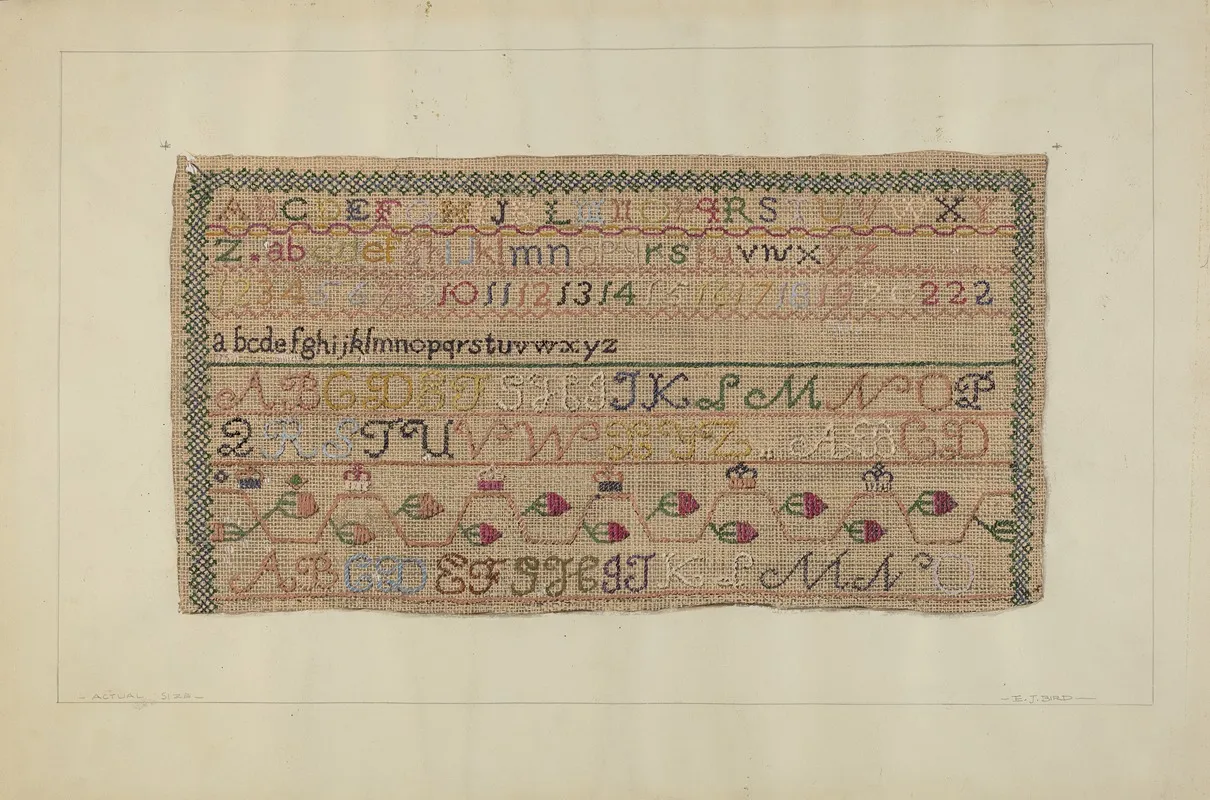 A B C D E F G H I J K L M N O P q R S T U V W X Y
Z . a b c d e f g h i j k l m n o p q r s t u v w x y z
1 2 3 4 5 6 7 8 9 10 11 12 13 14 15 16 17 18 19 20 22 2
a bcdefghijklmnopqrstuvwxyz
A B C D E F G H I J K L M N O P
Q R S T U V W X Y Z ,, A B C D
A B C D E F G H I J K L M N O
- ACTUAL SIZE -
- E. J. BIRD -